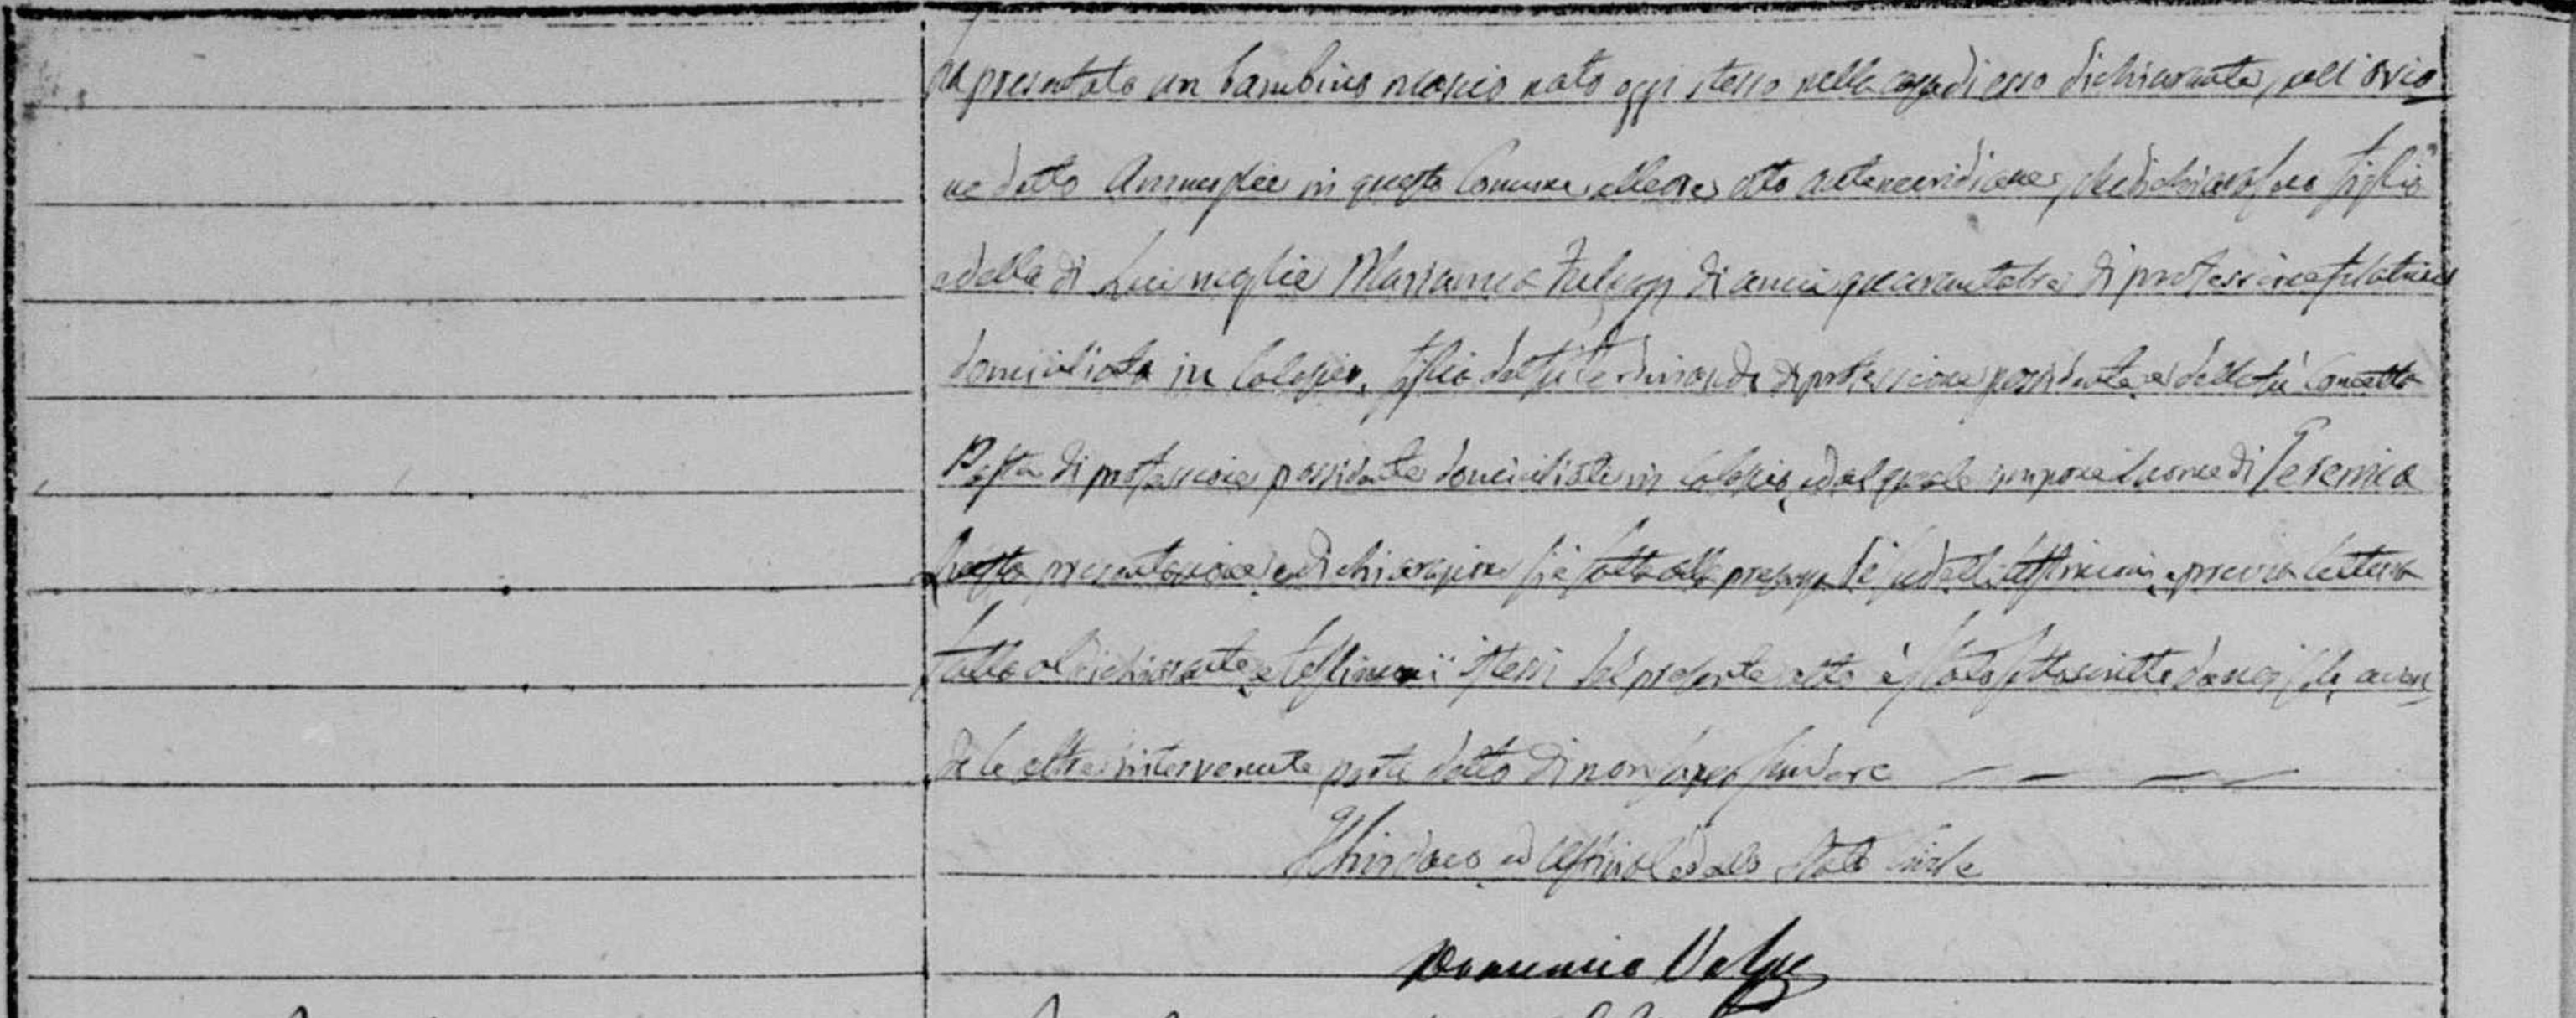 ha presentato un bambino maschio nato oggi stesso nella casa di esso dichiarante, nel rio
ne detto in questo Comune alle ore otto antemeridiane, che dichiara suo figlio
e della di lui moglie Marianna di anni quarantatre di professione filatrice
domiciliata in figlio del fu di professione possidente e della fu Concetta
di professione possidente domiciliati in ed al quale impone il nome di Geremia
Questa presentazione e dichiarazione si è fatta alla presenza de' sudetti testimonii, e previa lettura
fatta al dichiarante e testimonii stessi del presente atto è stato sottoscritto da noi solo, aven
do le altre intervenute parti detto di non saper scrivere
Il Sindaco ed Uffiziale dello Stato Civile
Domenico Volpe